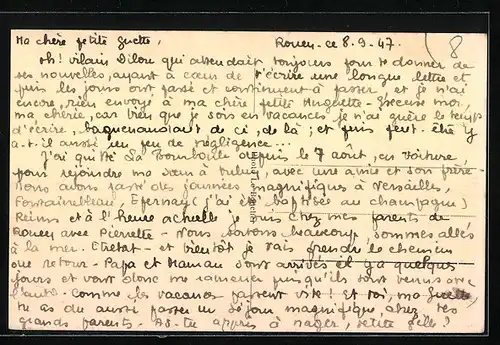 Ma chère petite Guette,
Rouen - ce 8.9.47.
8
Oh! vilain Dilou qui attendait toujours pour te donner de
ses nouvelles, ayant à cœur de t'écrire une longue lettre et
puis les jours ont passé et continuent à passer et je n'ai
encore rien envoyé à ma chère petite Huguette - Excuse moi,
ma chérie, car bien que je sois en vacances je n'ai guère le temps
d'écrire, baguenaudant de ci, de là; et puis peut-être y
a-t-il aussi un peu de négligence...
J'ai quitté La Bourboule depuis le 7 août, en voiture,
pour rejoindre ma sœur à avec une amie et son frère -
Nous avons passé des journées magnifiques à Versailles,
Fontainebleau, Epernay (j'ai été baptisée au champagne)
Reims et à l'heure actuelle je suis chez mes parents de
Rouen avec Pierrette - Nous sortons beaucoup, sommes allés
à la mer. Etretat - et bientôt je vais prendre le chemin
de retour - Papa et Maman sont arrivés il y a quelques
jours et vont donc me ramener puisqu'ils sont venus
l'auto - Comme les vacances passent vite! Et toi, ma Guette,
tu as dû aussi passer un séjour magnifique chez tes
grands parents. As-tu appris à nager, petite fille?